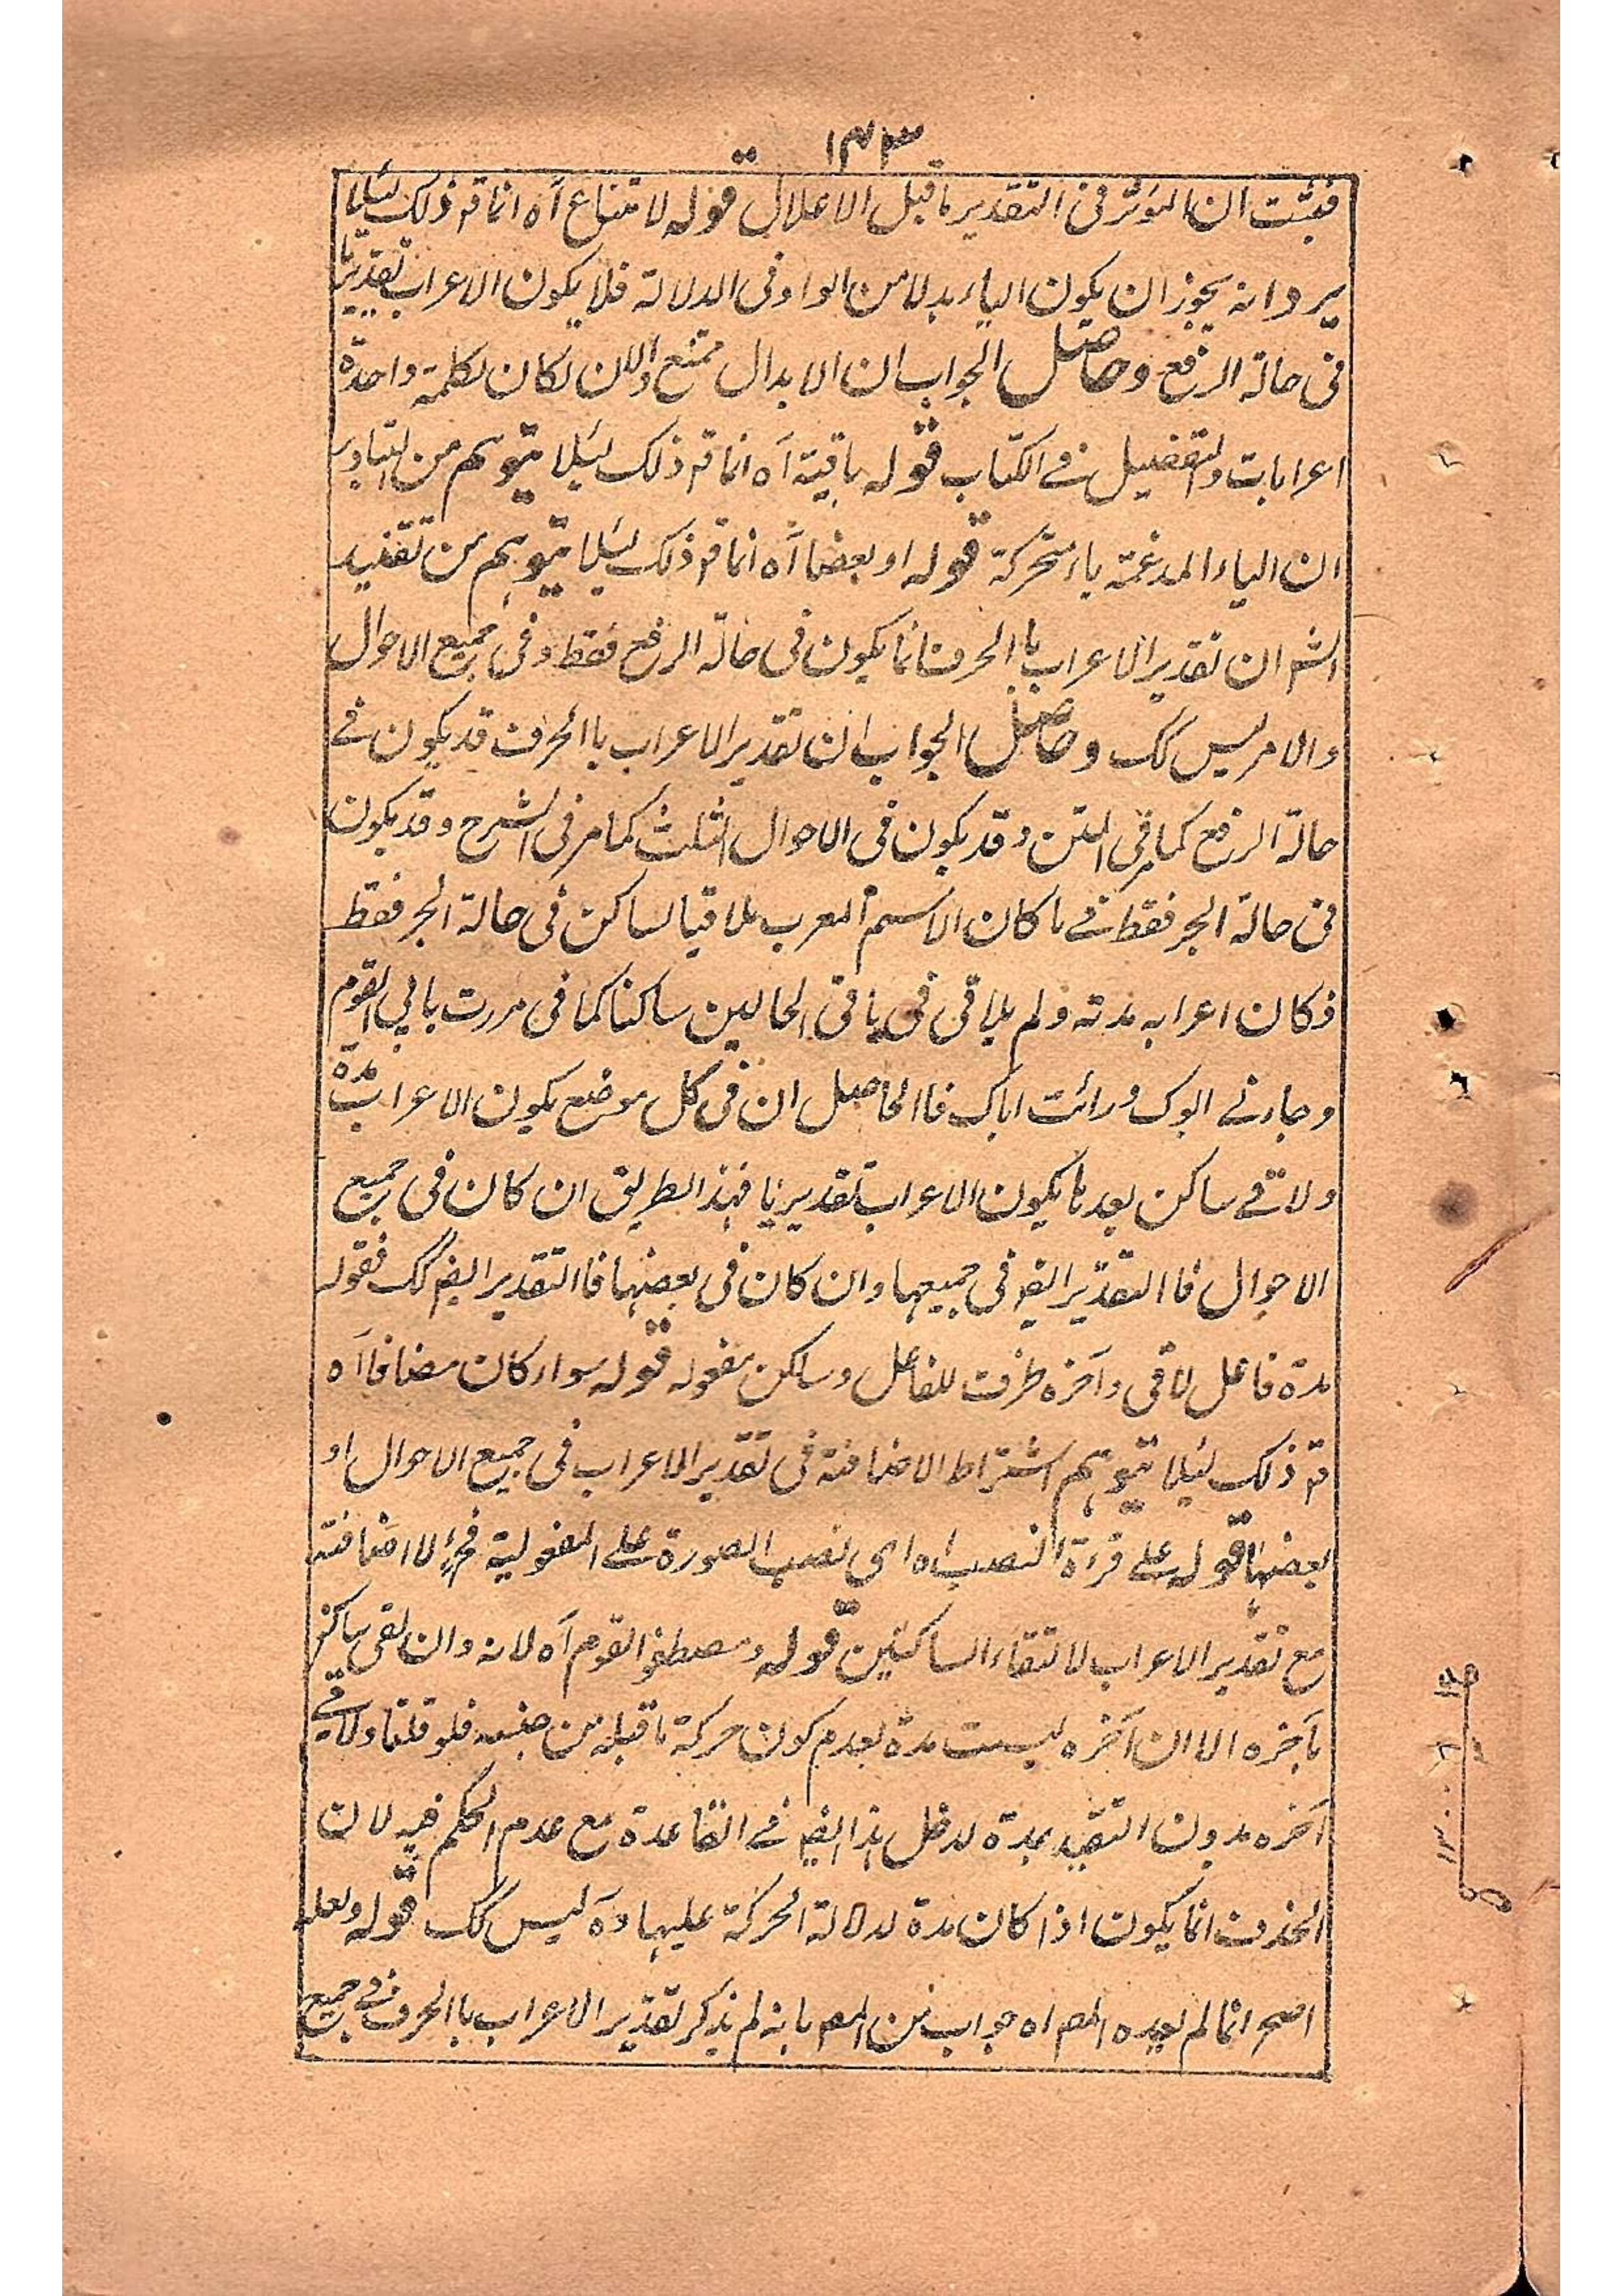 ١٤٣
فثبت ان المؤثر فى التقدير ما قبل الاعلال قوله لامتناع آه انما قـ ذلك لئلا
يرد انه يجوز ان يكون الياء بدلا من الواو فى الدلالة فلا يكون الاعراب تقديريا
فى حالة الرفع وحاصل الجواب ان الابدال ممتنع والا لكان لكلمة واحدة
اعرابات والتفصيل فى الكتاب قوله باقية آه انما قـ ذلك لئلا يتوهم من التبادر
ان الياء المدغمة ياء متحركة قوله او بعضا آه انما قـ ذلك لئلا يتوهم من تقئيد
الشـ ان تقدير الاعراب با الحرف انما يكون فى حالة الرفع فقط وفى جميع الاحوال
والامر ليس كك وحاصل الجواب ان تقدير الاعراب با الحرف قد يكون فى
حالة الرفع كما فى المتن وقد يكون فى الاحوال الثلث كما مر فى الشرح وقد يكون
فى حالة الجر فقط فى ما كان الاسم المعرب ملاقيا لساكن فى حالة الجر فقط
فكان اعرابه مدته ولم يلاقى فى باقى الحالين ساكنا كما فى مررت بابي القوم
وجاءنى ابوك ورائت اباك فا الحاصل ان فى كل موضع يكون الاعراب مدة
ولاقى ساكن بعدها يكون الاعراب تقديريا فهذا الطريق ان كان فى جميع
الاحوال فا التقدير ايضـ فى جميعها وان كان فى بعضها فا التقدير ايضـ كك فقوله
مدة فاعل لاقى وآخره ظرف للفاعل وساكن مفعوله قوله سواء كان مضافا آه
قـ ذلك لئلا يتوهم اشتراط الاضافة فى تقدير الاعراب فى جميع الاحوال او
بعضها قوله على قرءة النصب آه اى نصب الصورة على المفعولية فحـ لا اضافة
مع تقدير الاعراب لالتقاء الساكنين قوله ومصطفو القوم آه لانه وان لقى ساكن
بآخره الا ان آخره ليست مدة لعدم كون حركة ما قبله من جنسه فلو قلنا ولاقى
آخره بدون التقيد بمدة لدخل هذا ايضـ فى القاعدة مع عدم الحكم فيه لان
الحذف انما يكون اذا كان مدة لدلالة الحركة عليها وه ليس كك قوله ولعله
اصحـ انما لم يعده المصـ اه جواب من المصـ بانه لم يذكر تقدير الاعراب با الحرف فى جميع